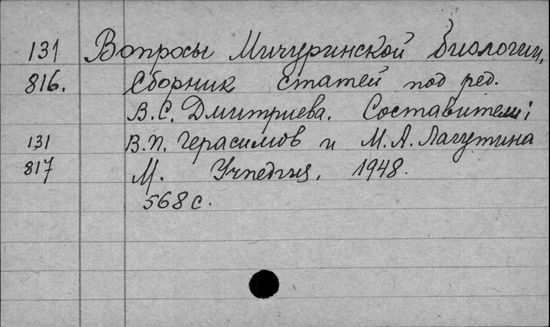 131 Вопросы Мичуринской биологии.
816. Сборник статей под ред.
В.С. Дмитриева. Составители:
131 В.П. Герасимов и М.А. Лагутина
817 М. Учпедгиз, 1948.
568 с.